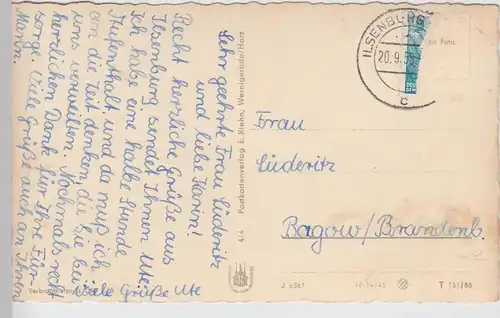 Sehr geehrte Frau Lüderitz
und liebe Karin!
Recht herzliche Grüße aus
Ilsenburg sendet Ihnen Ute
Ich habe eine halbe Stunde
Aufenthalt und da muß ich
an die Zeit denken, die Sie bei
uns verweilten. Nochmals recht
herzlichen Dank für Ihre Für-
sorge. Viele Grüße auch an Ihren
Mann.
viele Grüße Ute
4/4 Postkartenverlag E. Riehn, Wernigerode/Harz
ILSENBURG
20.9.
c
Foto
Frau
Lüderitz
Bagow/Brandenb.
T 151/80